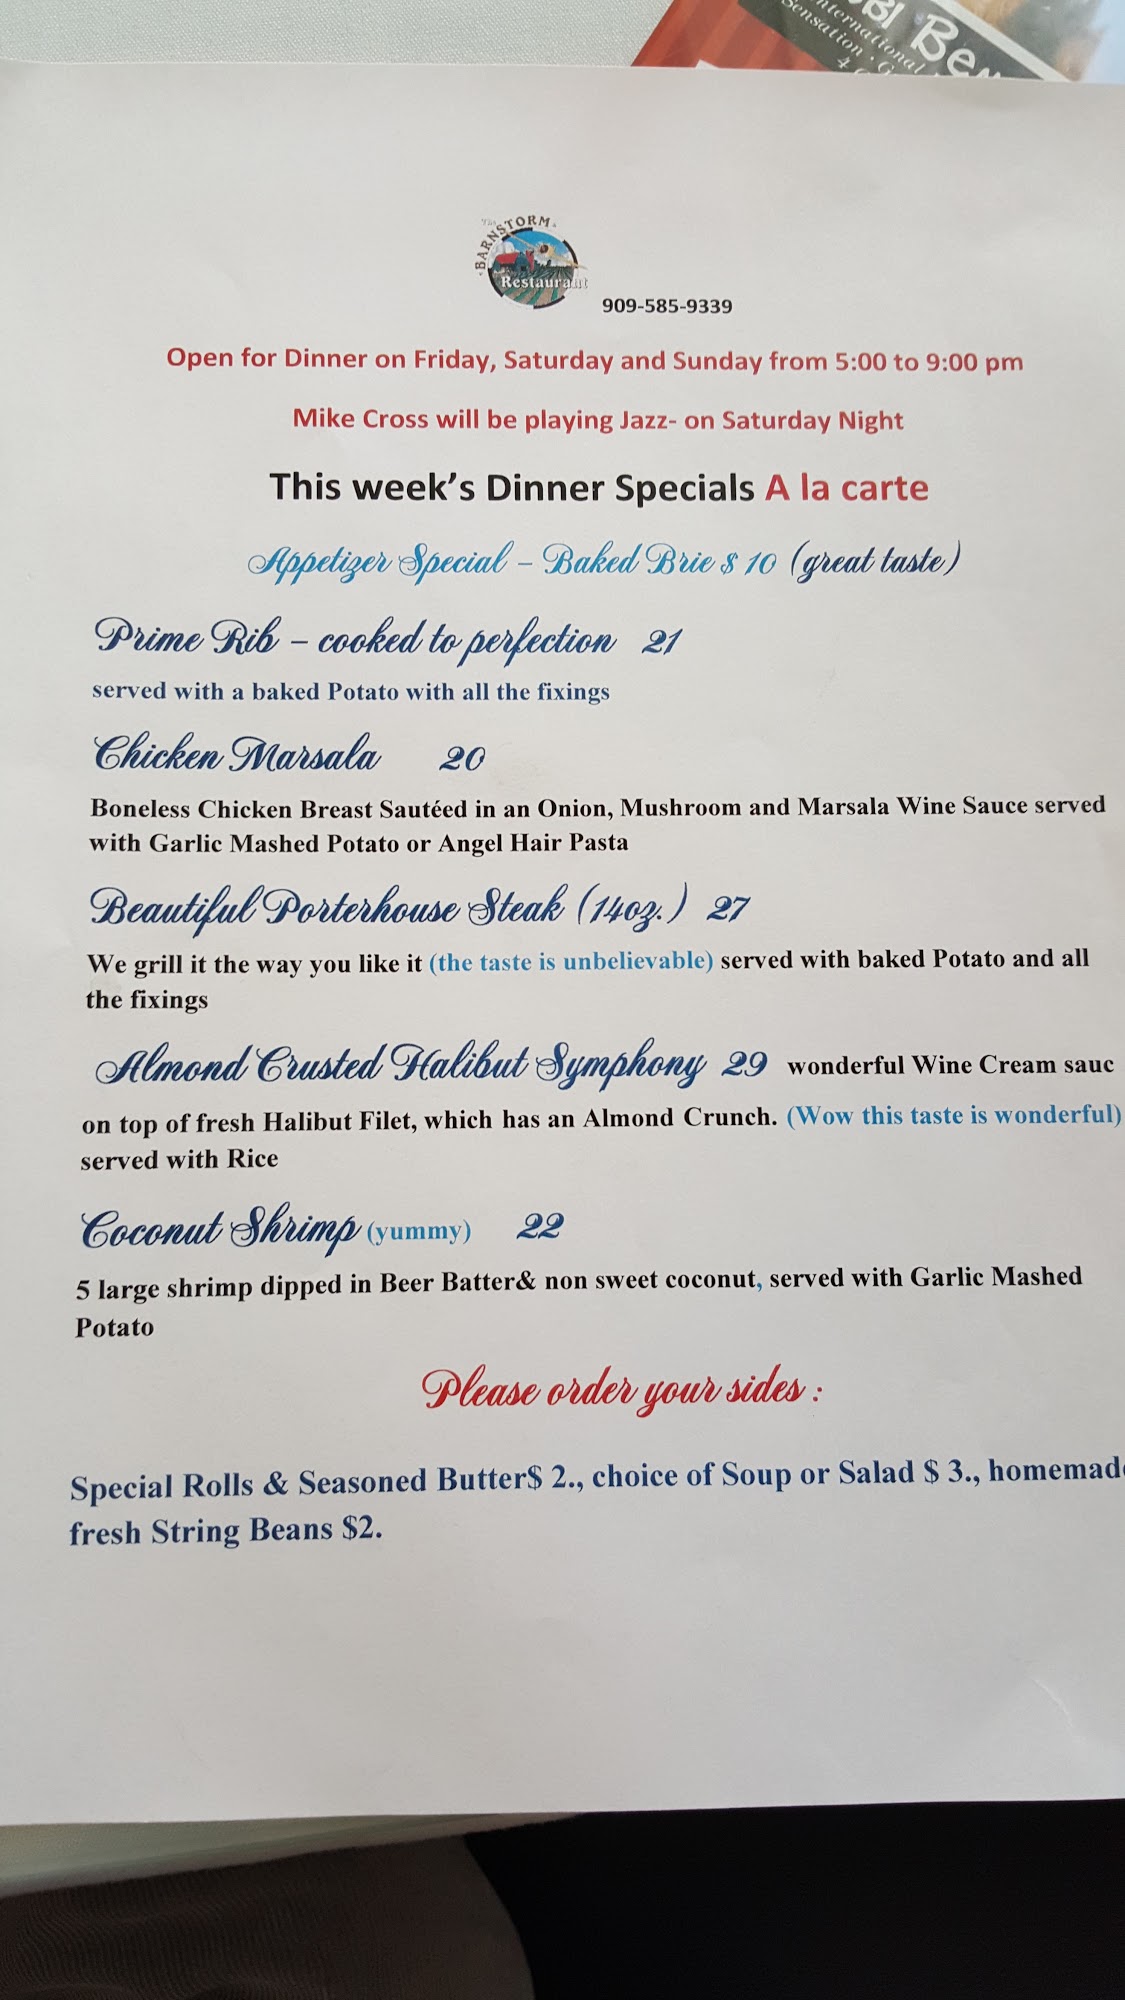 BI Be
International
Sensation · G
The
BARNSTORM
Restaurant
909-585-9339
Open for Dinner on Friday, Saturday and Sunday from 5:00 to 9:00 pm
Mike Cross will be playing Jazz- on Saturday Night
This week's Dinner Specials A la carte
Appetizer Special – Baked Brie $ 10 (great taste)
Prime Rib – cooked to perfection 21
served with a baked Potato with all the fixings
Chicken Marsala 20
Boneless Chicken Breast Sautéed in an Onion, Mushroom and Marsala Wine Sauce served
with Garlic Mashed Potato or Angel Hair Pasta
Beautiful Porterhouse Steak (14oz.) 27
We grill it the way you like it (the taste is unbelievable) served with baked Potato and all
the fixings
Almond Crusted Halibut Symphony 29 wonderful Wine Cream sauc
on top of fresh Halibut Filet, which has an Almond Crunch. (Wow this taste is wonderful)
served with Rice
Coconut Shrimp (yummy) 22
5 large shrimp dipped in Beer Batter& non sweet coconut, served with Garlic Mashed
Potato
Please order your sides :
Special Rolls & Seasoned Butter$ 2., choice of Soup or Salad $ 3., homemade
fresh String Beans $2.